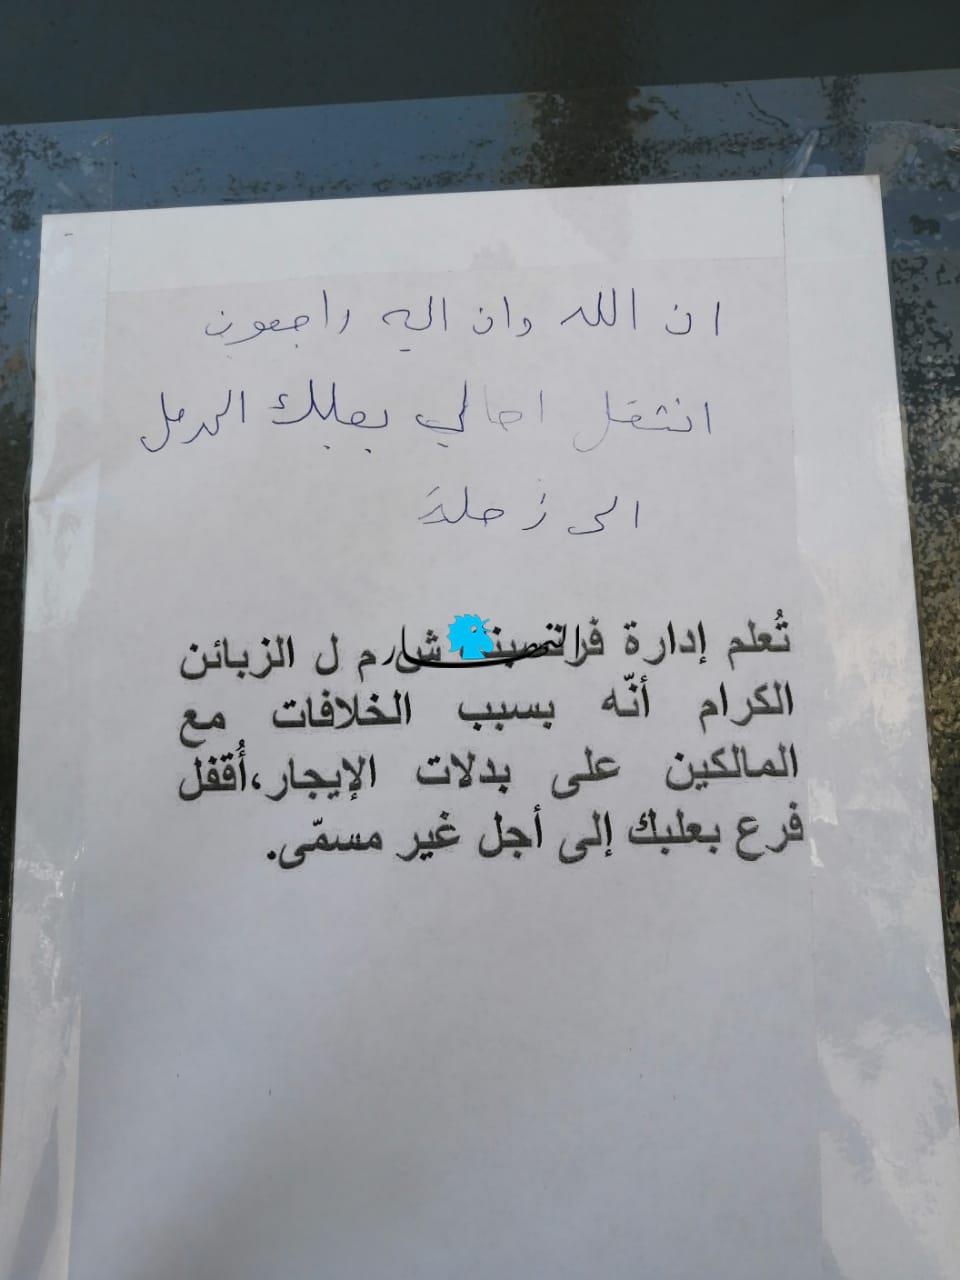 ان الله وان اليه راجعون
انتقل اهالي بعلبك الهرمل
الى زحلة
تُعلم إدارة م ل الزبائن
الكرام أنّه بسبب الخلافات مع
المالكين على بدلات الإيجار،أُقفل
فرع بعلبك إلى أجل غير مسمّى.